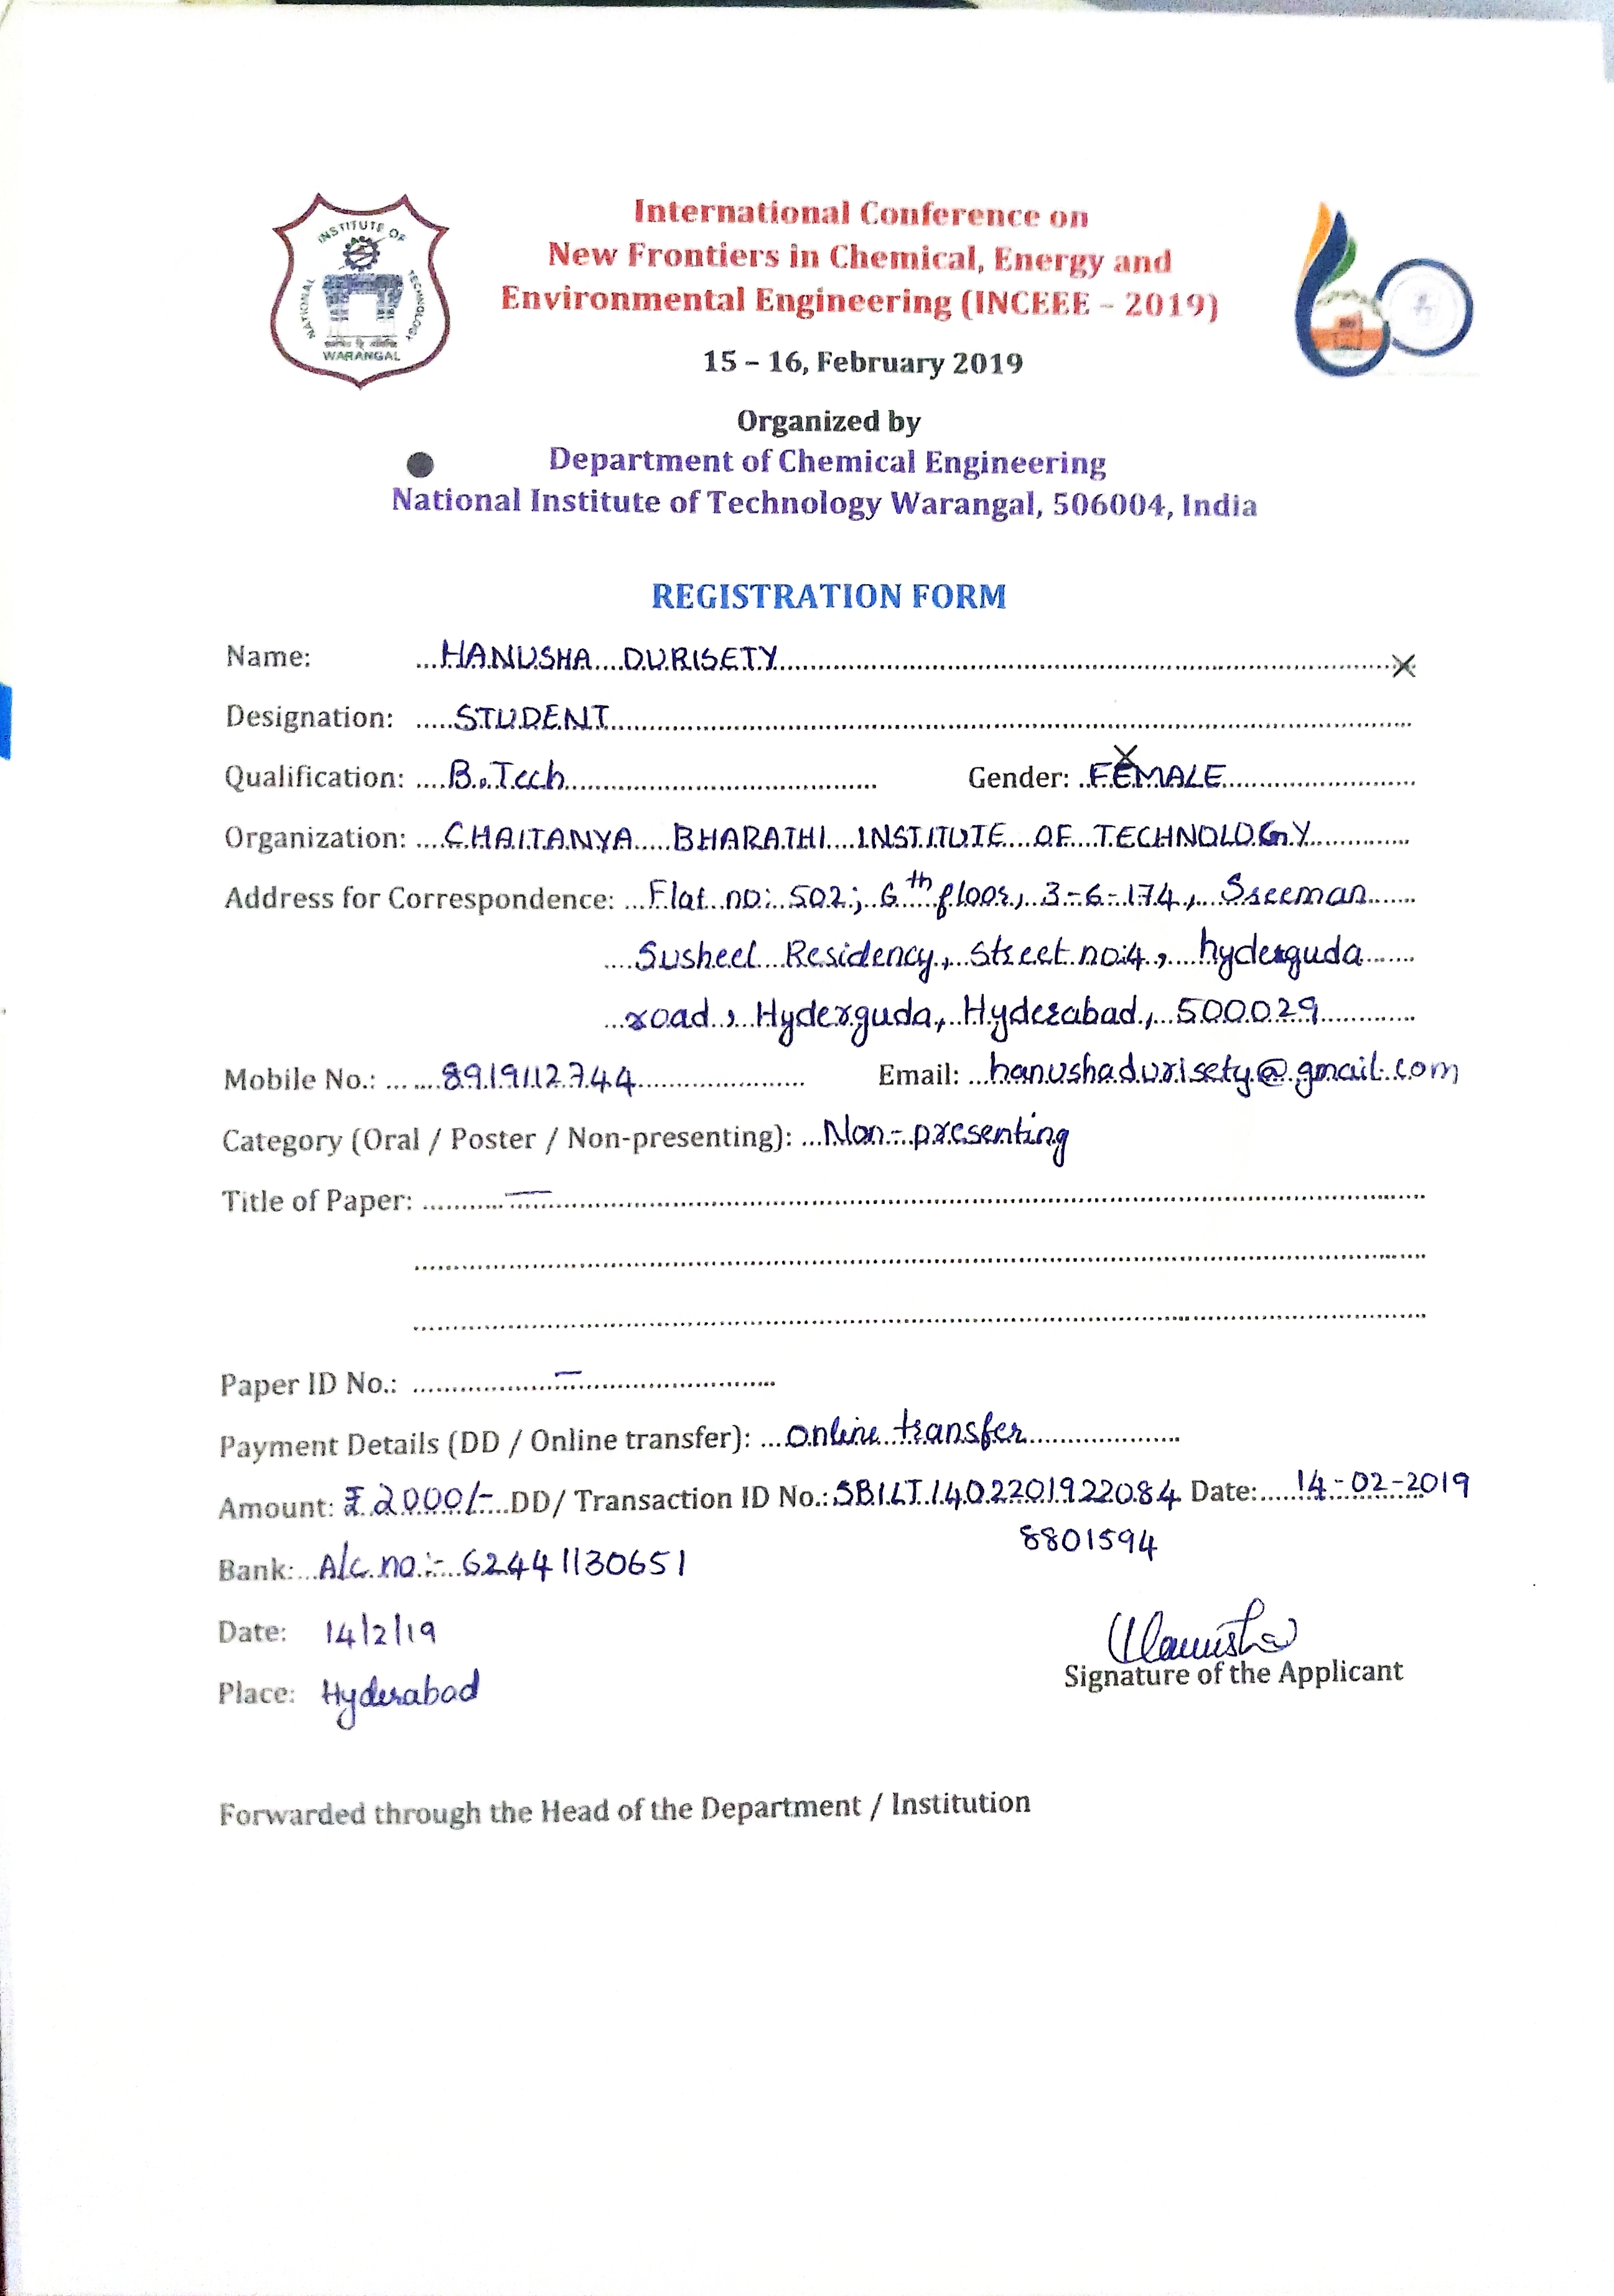 INSTITUTE OF
NATIONAL
TECHNOLOGY
WARANGAL
International Conference on
New Frontiers in Chemical, Energy and
Environmental Engineering (INCEEE - 2019)
15 – 16, February 2019
Organized by
Department of Chemical Engineering
National Institute of Technology Warangal, 506004, India
REGISTRATION FORM
Name: HANUSHA DURISETY
Designation: STUDENT
Qualification: B.Tech Gender: FEMALE
Organization: CHAITANYA BHARATHI INSTITUTE OF TECHNOLOGY
Address for Correspondence: Flat no: 502; 6th floor, 3-6-174, Sreeman
Susheel Residency, street no:4, hyderguda
road, Hyderguda, Hyderabad, 500029
Mobile No.: 8919112744 Email: hanushadurisety@gmail.com
Category (Oral / Poster / Non-presenting): Non-presenting
Title of Paper: —
Paper ID No.: —
Payment Details (DD / Online transfer): online transfer
Amount: ₹2000/- DD/ Transaction ID No.: SBILT1402201922084 Date: 14-02-2019
8801594
Bank: A/c no:- 62441130651
Date: 14/2/19
Hanusha
Signature of the Applicant
Place: Hyderabad
Forwarded through the Head of the Department / Institution